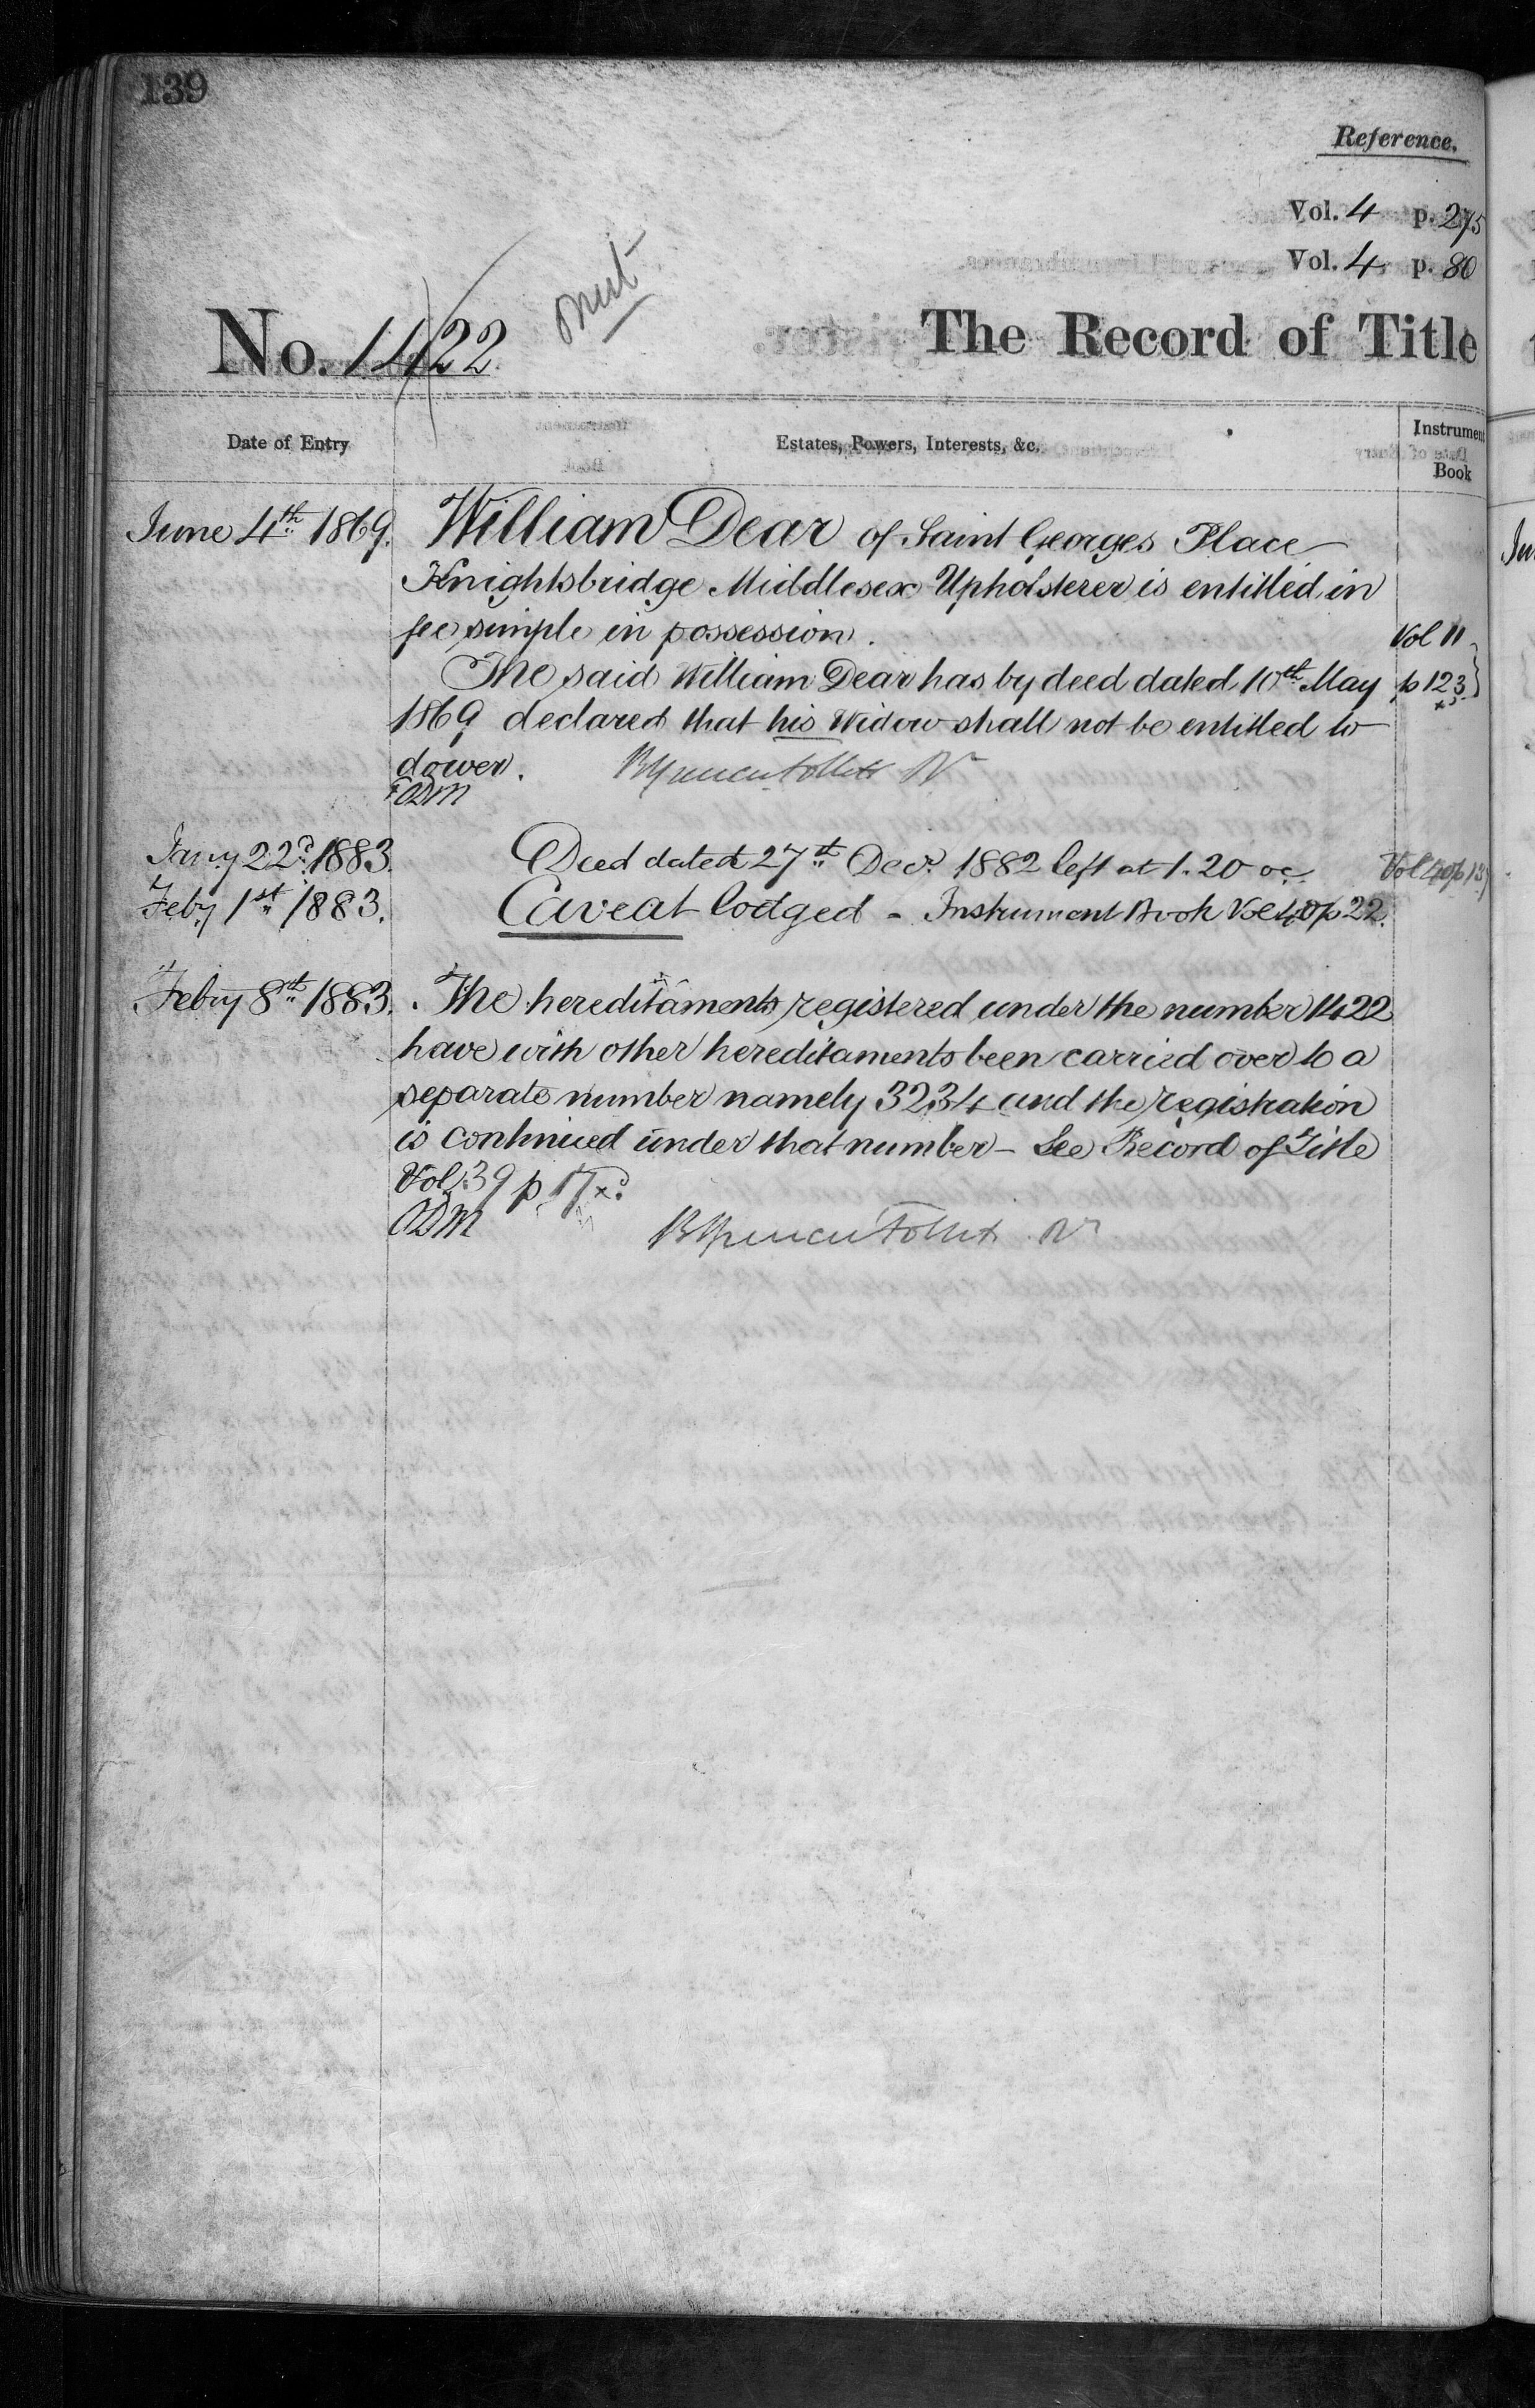 139
Reference.
Vol. 4 p. 275
Vol. 4 p. 80
No. 1422
The Record of Title
Date of Entry
Estates, Powers, Interests, &c.
Instrument
Book
June 4th 1869. William Dear of Saint Georges Place
Knightsbridge Middlesex Upholsterer is entitled in
fee simple in possession. Vol 11
The said William Dear has by deed dated 10th May p 123
1869 declared that his Widow shall not be entitled to
dower.
Jany 22d 1883. Deed dated 27th Decr 1882 left at 1.20 oc Vol 40 p 13
Feby 1st 1883. Caveat lodged - Instrument Book Vol 40 p 22.
Feby 8th 1883. The hereditaments registered under the number 1422
have with other hereditaments been carried over to a
separate number namely 3234 and the registration
is continued under that number - See Record of Title
Vol 39 p 17